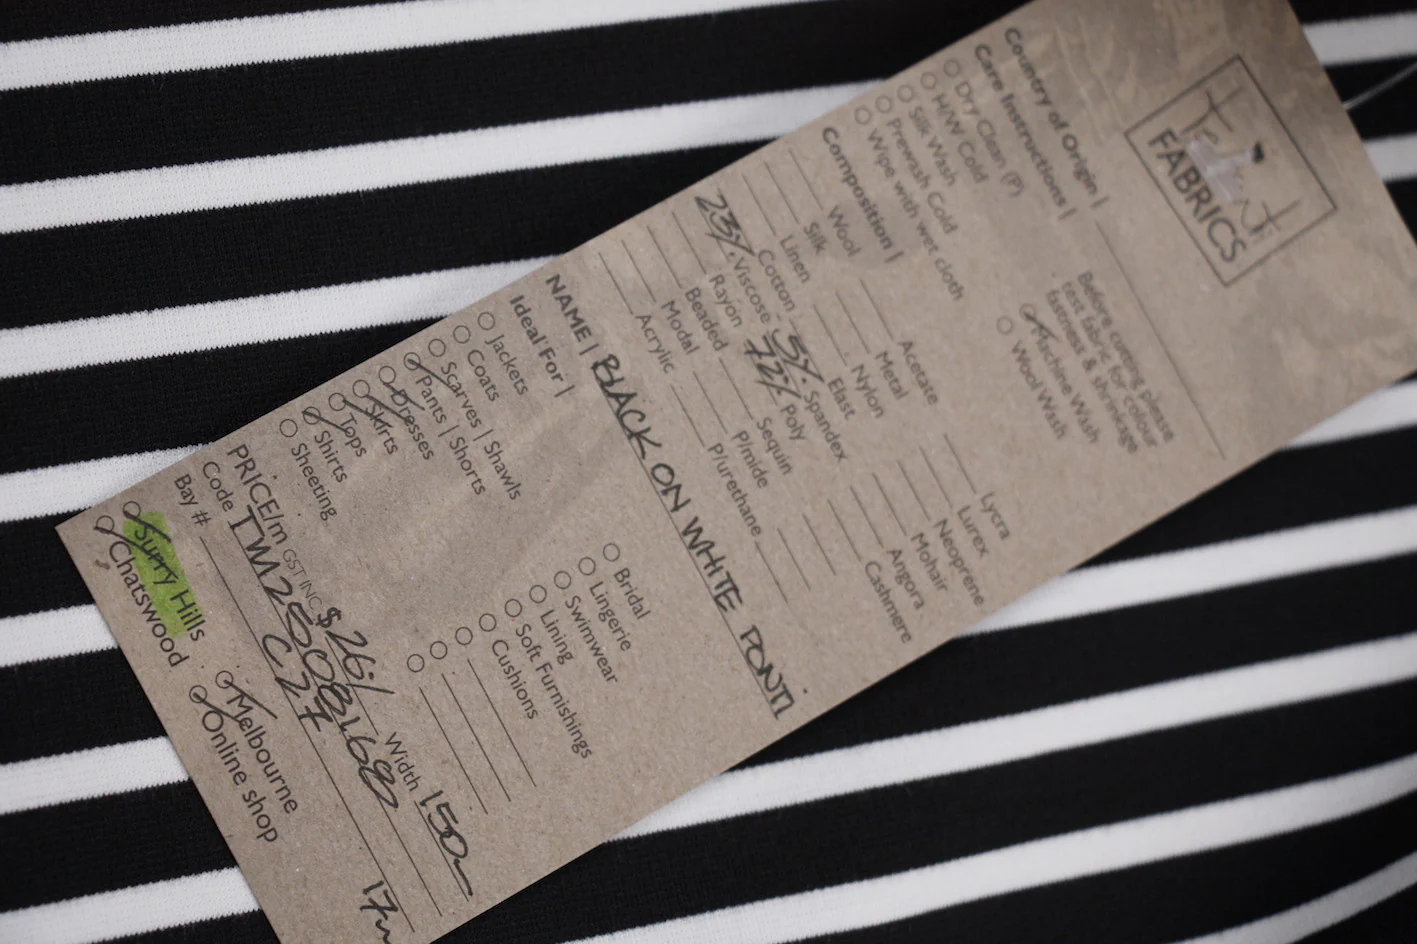 The Fabric Store
FABRICS
Country of Origin |
Care Instructions |
Dry Clean (P)
H/W Cold
Silk Wash
Prewash Cold
Wipe with wet cloth
Before cutting please
test fabric for colour
fastness & shrinkage
Machine Wash
Wool Wash
Composition |
Wool
Silk
Linen
Cotton
23% Viscose
Rayon
Beaded
Modal
Acrylic
Acetate
Metal
Nylon
Elast
5% Spandex
72% Poly
Sequin
P/mide
P/urethane
Lycra
Lurex
Neoprene
Mohair
Angora
Cashmere
NAME | BLACK ON WHITE PONTI
Ideal For |
Jackets
Coats
Scarves | Shawls
Pants | Shorts
Dresses
Skirts
Tops
Shirts
Sheeting
Bridal
Lingerie
Swimwear
Lining
Soft Furnishings
Cushions
PRICE/m GST INC $26/ Width 150
Code
Bay # C27
17m
Surry Hills
Chatswood
Melbourne
Online shop